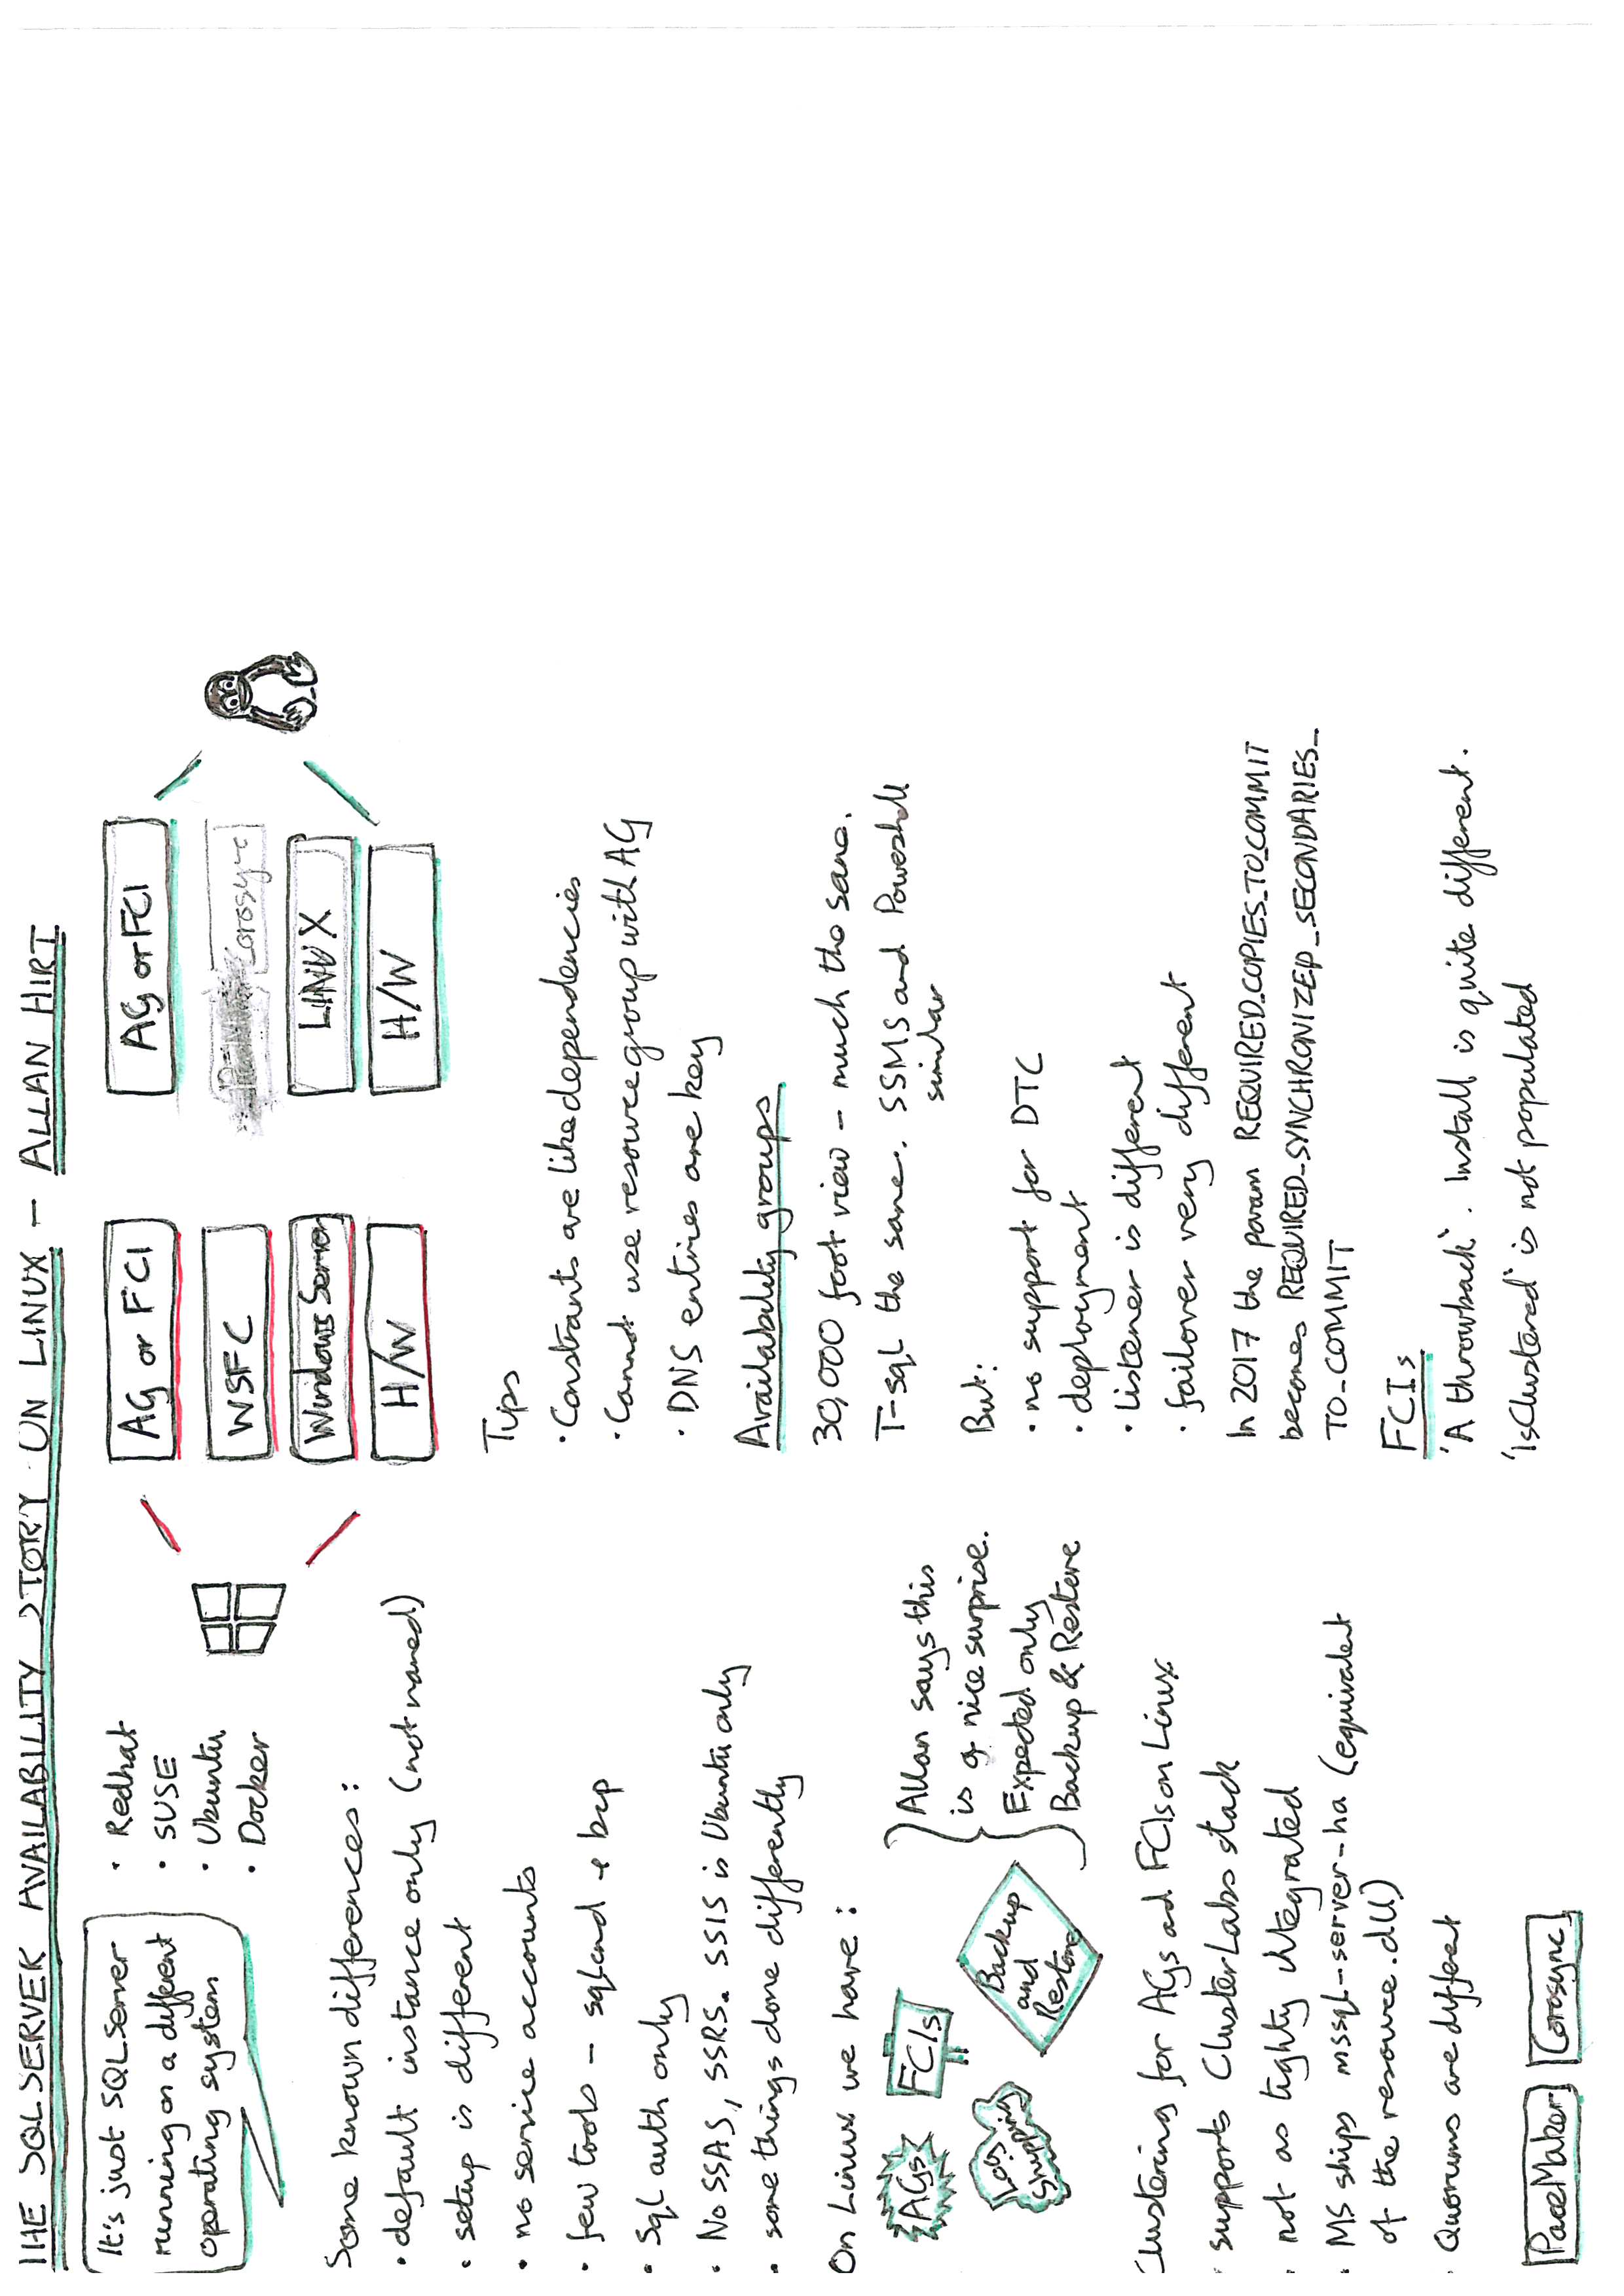 THE SQL SERVER AVAILABILITY STORY ON LINUX - ALLAN HIRT
It's just SQL Server
running on a different
operating system
• Redhat
• SUSE
• Ubuntu
• Docker
AG or FCI
WSFC
Windows Server
H/W
AG or FCI
PaceMaker Corosync
LINUX
H/W
Some known differences:
• default instance only (not named)
• setup is different
• no service accounts
• few tools - sqlcmd + bcp
• Sql auth only
• No SSAS, SSRS. SSIS is Ubuntu only
• some things done differently
On Linux we have:
AGs
FCIs
Log
Shipping
Backup
and
Restore
Allan says this
is a nice surprise.
Expected only
Backup & Restore
Clustering for AGs and FCIs on Linux
• supports ClusterLabs stack
• not as tighty integrated
• MS ships mssql-server-ha (equivalent
of the resource.dll)
• Quorums are different
PaceMaker Corosync
Tips
• Constrants are like dependencies
• Cannot use resource group with AG
• DNS entries are key
Availability groups
30,000 foot view - much the same.
T-sql the same. SSMS and Powershell
similar
But:
• no support for DTC
• deployment
• listener is different
• failover very different
In 2017 the param REQUIRED_COPIES_TO_COMMIT
becomes REQUIRED_SYNCHRONIZED_SECONDARIES_
TO_COMMIT
FCIs
'A throwback'. Install is quite different.
'IsClustered' is not populated